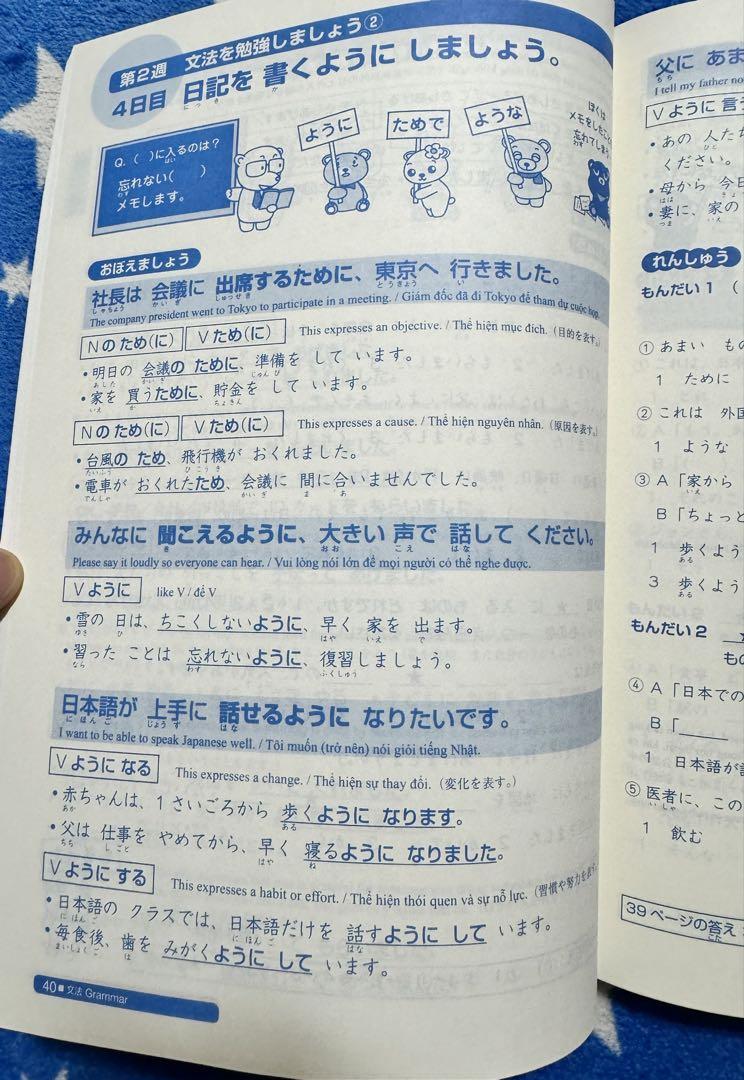 第2週 文法を勉強しましょう②
4日目 日記を 書くように しましょう。
にっき か
Q. ( )に入るのは？
はい
忘れない( )
わす
メモします。
ように
ためで
ような
ぼくは
メモをしたこ
忘れてしまう
わす
おぼえましょう
社長は 会議に 出席するために、東京へ 行きました。
しゃちょう かいぎ しゅっせき とうきょう い
The company president went to Tokyo to participate in a meeting. / Giám đốc đã đi Tokyo để tham dự cuộc họp.
Nのため(に) Vため(に) This expresses an objective. / Thể hiện mục đích.（目的を表す。）
・明日の 会議の ために、準備を して います。
あした かいぎ じゅんび
・家を 買うために、貯金を して います。
いえ か ちょきん
Nのため(に) Vため(に) This expresses a cause. / Thể hiện nguyên nhân.（原因を表す。）
・台風の ため、飛行機が おくれました。
たいふう ひこうき
・電車が おくれたため、会議に 間に合いませんでした。
でんしゃ かいぎ ま あ
みんなに 聞こえるように、大きい 声で 話して ください。
き おお こえ はな
Please say it loudly so everyone can hear. / Vui lòng nói lớn để mọi người có thể nghe được.
Vように like V / để V
・雪の 日は、ちこくしないように、早く 家を 出ます。
ゆき ひ はや いえ で
・習った ことは 忘れないように、復習しましょう。
なら わす ふくしゅう
日本語が 上手に 話せるように なりたいです。
にほんご じょうず はな
I want to be able to speak Japanese well. / Tôi muốn (trở nên) nói giỏi tiếng Nhật.
Vように なる This expresses a change. / Thể hiện sự thay đổi.（変化を表す。）
・赤ちゃんは、1さいごろから 歩くように なります。
あか ある
・父は 仕事を やめてから、早く 寝るように なりました。
ちち しごと はや ね
Vように する This expresses a habit or effort. / Thể hiện thói quen và sự nỗ lực.（習慣や努力を表す
・日本語の クラスでは、日本語だけを 話すように して います。
にほんご にほんご はな
・毎食後、歯を みがくように して います。
まいしょくご は
40 文法 Grammar
父に あま
ちち
I tell my father no
Vように 言う
・あの 人た
ひと
ください。
・母から 今日
はは
・妻に、家の
つま いえ
れんしゅう
もんだい1 (
① あまい もの
1 ために
② これは 外国
1 ような
③ A「家から
いえ
B「ちょっと
1 歩くよう
ある
3 歩くよう
ある
もんだい2
もの
④ A「日本での
B「
1 日本語が
⑤ 医者に、この
いしゃ
1 飲む
39ページの答え
こた